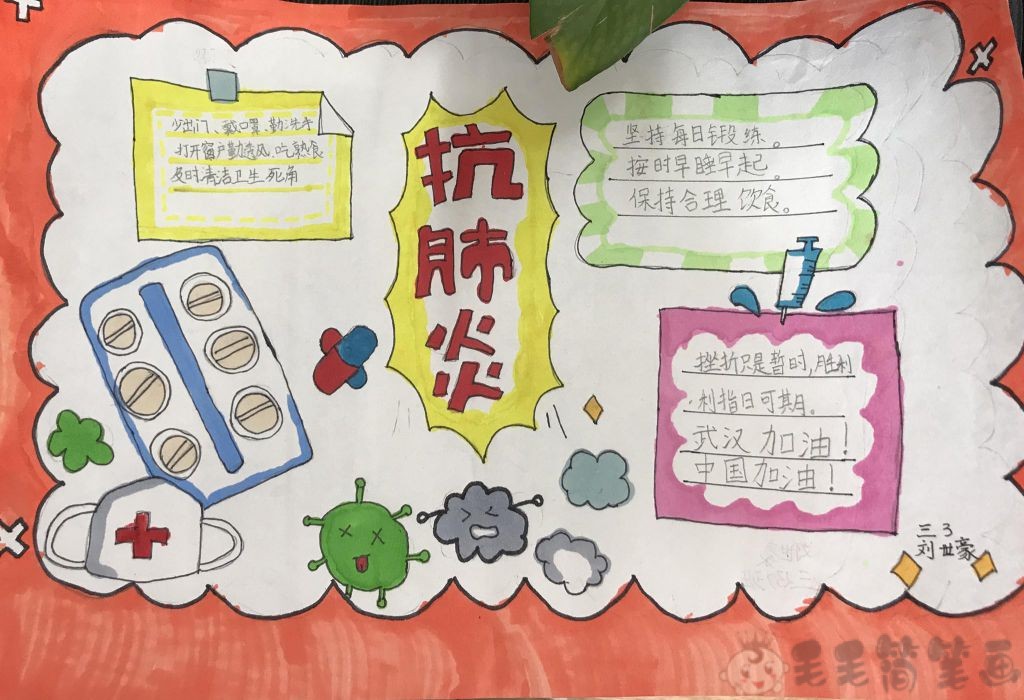 少出门、戴口罩、勤洗手
打开窗户勤透风、吃熟食
及时清洁卫生死角
抗
肺
炎
坚持每日锻练。
按时早睡早起。
保持合理饮食。
挫折只是暂时,胜利
利指日可期。
武汉加油!
中国加油!
三3
刘世豪
毛毛简笔画